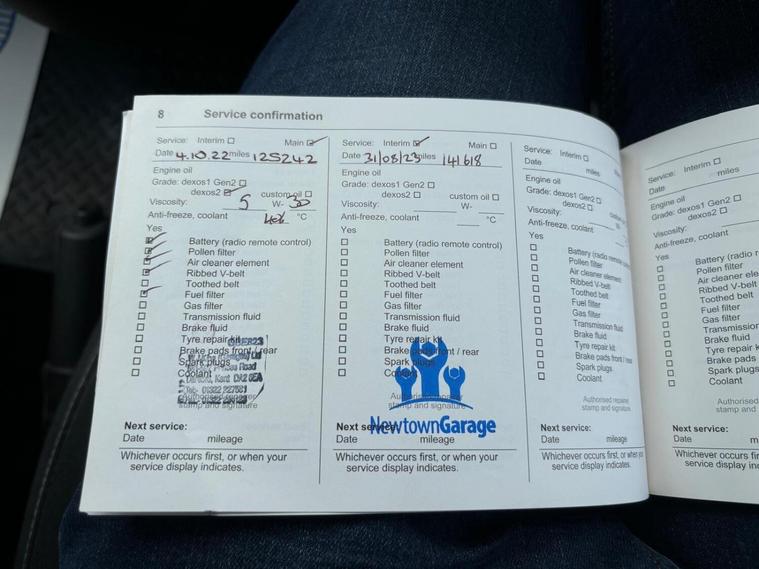 8 Service confirmation
Service: Interim ☐ Main ☑
Date 4.10.22 miles 125242
Engine oil
Grade: dexos1 Gen2 ☐
dexos2 ☑ custom oil ☐
Viscosity: 5 W- 30
Anti-freeze, coolant °C
Yes
☑ Battery (radio remote control)
☑ Pollen filter
☑ Air cleaner element
☑ Ribbed V-belt
☐ Toothed belt
☑ Fuel filter
☐ Gas filter
☐ Transmission fluid
☐ Brake fluid
☐ Tyre repair kit
☐ Brake pads front / rear
☐ Spark plugs
☐ Coolant
Road
Kent DA2 6EA
Authorised repairer
stamp and signature
Next service:
Date mileage
Whichever occurs first, or when your
service display indicates.
Service: Interim ☑ Main ☐
Date 31/08/23 miles 141618
Engine oil
Grade: dexos1 Gen2 ☐
dexos2 ☐ custom oil ☐
Viscosity: W-
Anti-freeze, coolant °C
Yes
☐ Battery (radio remote control)
☐ Pollen filter
☐ Air cleaner element
☐ Ribbed V-belt
☐ Toothed belt
☐ Fuel filter
☐ Gas filter
☐ Transmission fluid
☐ Brake fluid
☐ Tyre repair kit
☐ Brake pads front / rear
☐ Spark plugs
☐
stamp and signature
NewtownGarage
Next service:
Date mileage
Whichever occurs first, or when your
service display indicates.
Service: Interim ☐
Date miles
Engine oil
Grade: dexos1 Gen2 ☐
dexos2 ☐
Viscosity:
Anti-freeze, coolant
Yes
☐ Battery (radio remote control)
☐ Pollen filter
☐ Air cleaner element
☐ Ribbed V-belt
☐ Toothed belt
☐ Fuel filter
☐ Gas filter
☐ Transmission fluid
☐ Brake fluid
☐ Tyre repair kit
☐ Brake pads front / rear
☐ Spark plugs
☐ Coolant
Authorised repairer
stamp and signature
Next service:
Date mileage
Whichever occurs first, or when
service display indicates.
Service: Interim ☐
Date miles
Engine oil
Grade: dexos1 Gen2 ☐
dexos2 ☐
Viscosity:
Anti-freeze, coolant
Yes
☐ Battery (radio
☐ Pollen filter
☐ Air cleaner
☐ Ribbed V-belt
☐ Toothed belt
☐ Fuel filter
☐ Gas filter
☐ Transmission
☐ Brake fluid
☐ Tyre repair
☐ Brake pads
☐ Spark plugs
☐ Coolant
Authorised
stamp and
Next service:
Date
Whichever occurs first,
service display